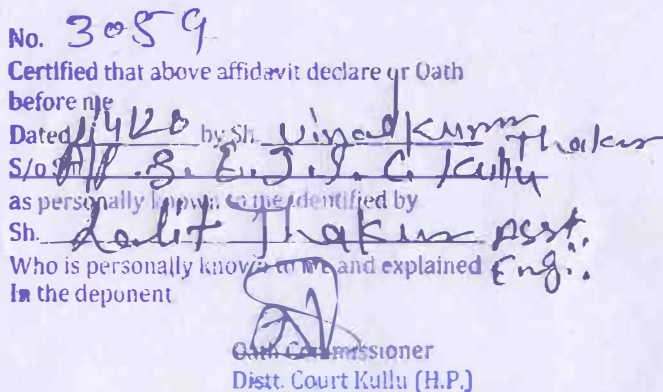 No. 3059
Certified that above affidavit declare or Oath
before me
Dated by Sh. Vinod Kumar Thakur
S/o Sh. Kullu
as personally known to me identified by
Sh. Lalit Thakur Asst.
Who is personally known to me and explained Eng..
In the deponent
Oath Commissioner
Distt. Court Kullu (H.P.)